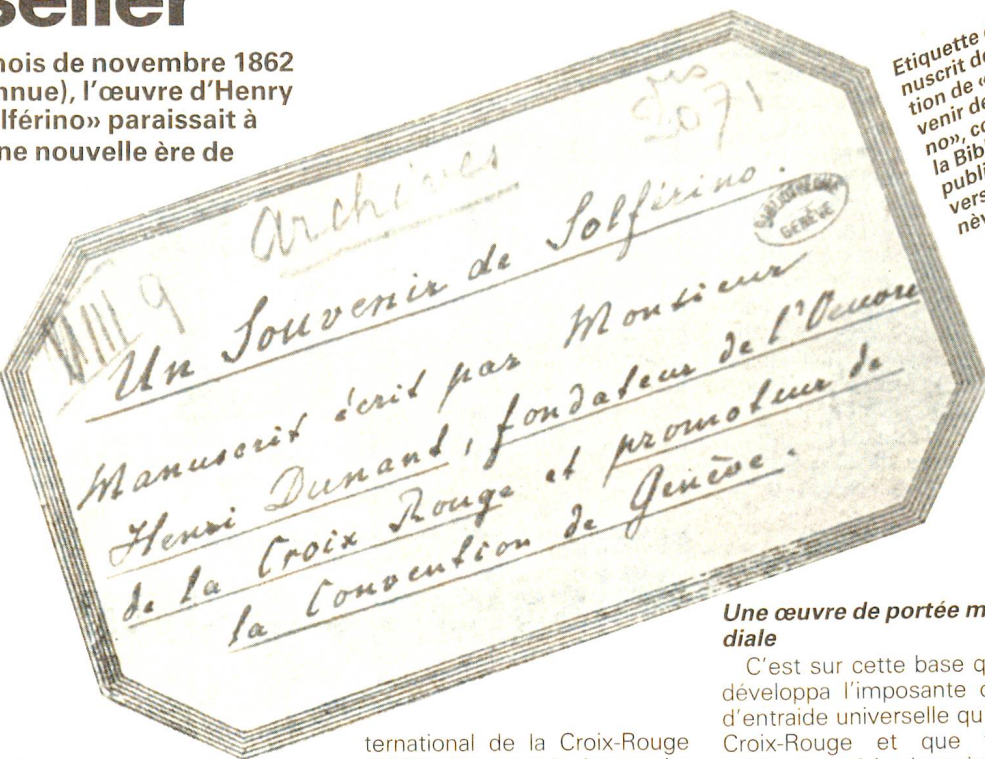 seller
nois de novembre 1862
nnue), l'œuvre d'Henry
lférino» paraissait à
ne nouvelle ère de
Etiquette
nuscrit de
tion de «
venir de
no», co
la Bib
publi
vers
nèv
Archives
ms
2071
VIII 9
Un Souvenir de Solférino.
BIBLIOTHÈQUE
GENÈVE
Manuscrit écrit par Monsieur
Henri Dunant, fondateur de l'Œuvre
de la Croix Rouge et promoteur de
la Convention de Genève.
Une œuvre de portée m
diale
C'est sur cette base q
développa l'imposante
d'entraide universelle qu
ternational de la Croix-Rouge
Croix-Rouge et que